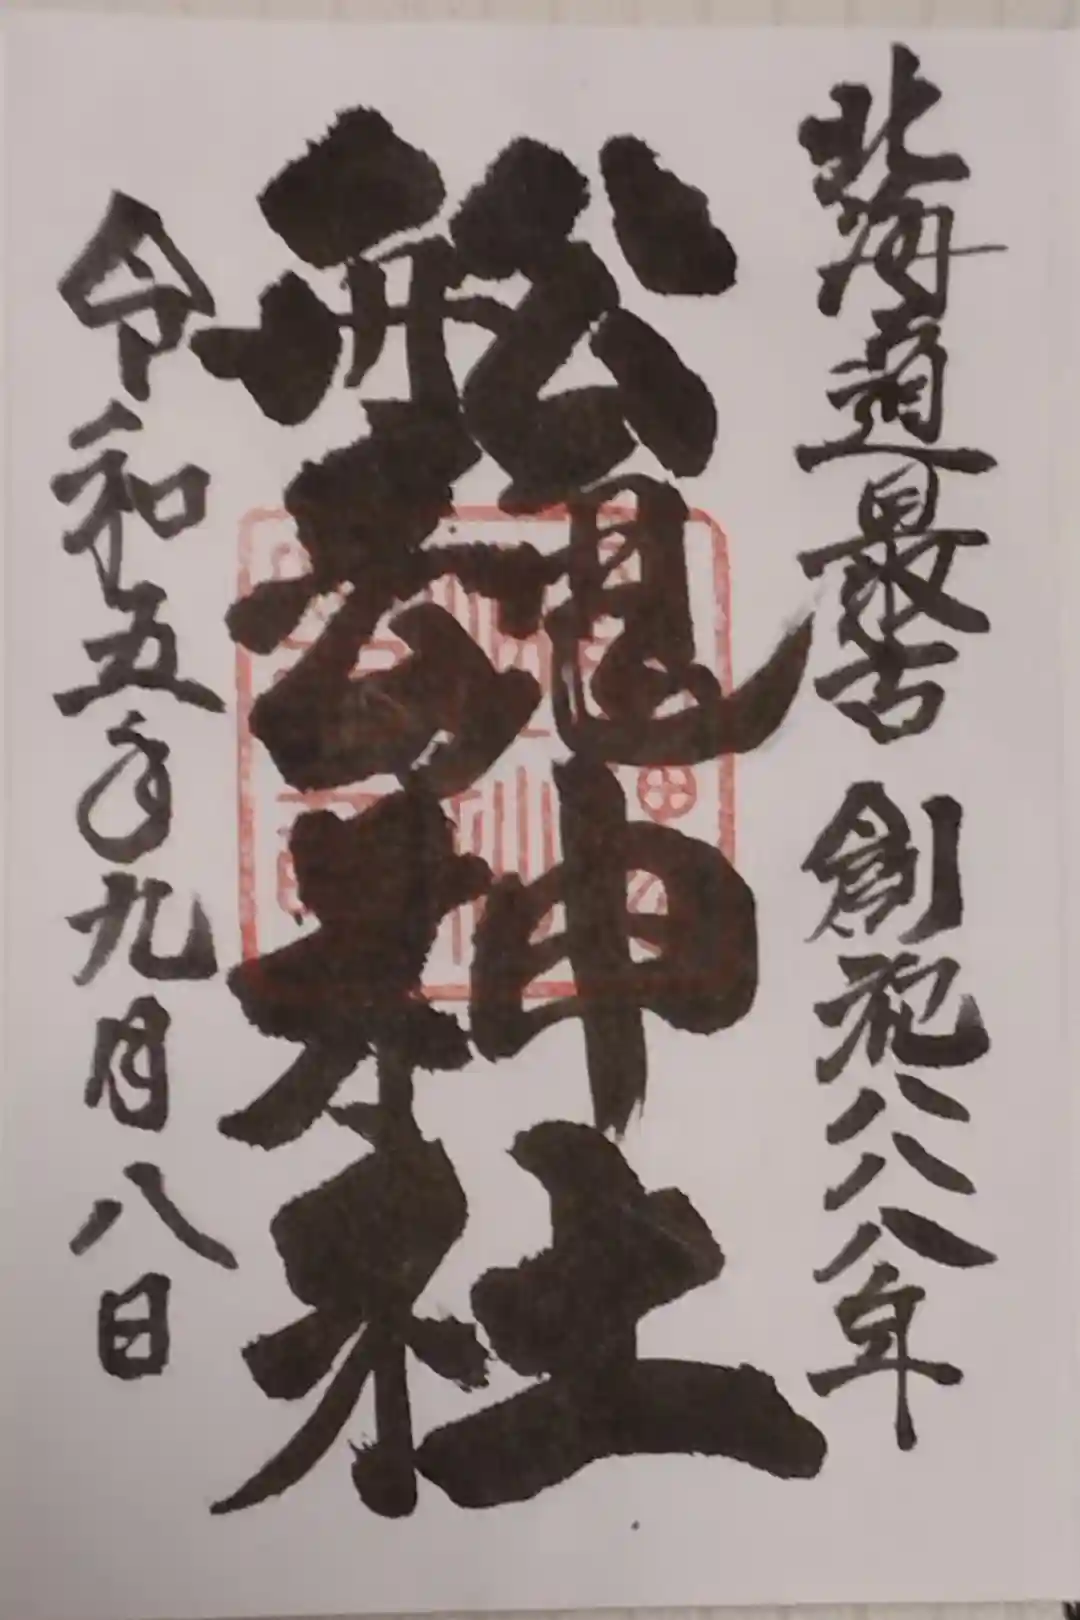 北海道最古 創祀八八八年
舩魂神社
令和五年九月八日